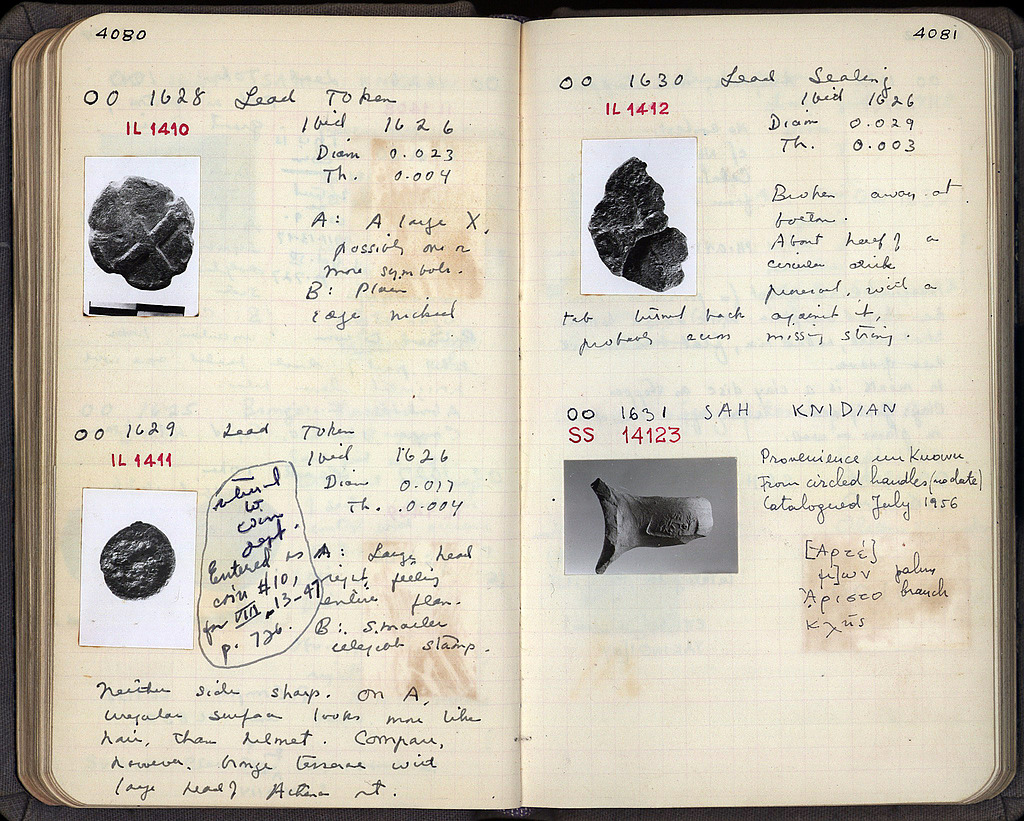 4080
OO 1628 Lead Token
IL 1410
Ibid 1626
Diam 0.023
Th. 0.004
A: A large X,
possibly one or
more symbols.
B: Plain
Edge nicked
OO 1629 Lead Token
IL 1411
Ibid 1626
Diam 0.017
Th. 0.004
returned
to
coin
dept.
Entered as
coin #10,
for VIII, 13-47
p. 726.
A: Large head
right, filling
entire flan.
B: Smaller
stamp.
Neither side sharp. On A,
irregular surface looks more like
hair, than helmet. Compare,
however, bronze tesserae with
large head of Athena rt.
4081
OO 1630 Lead Sealing
IL 1412
Ibid 1626
Diam 0.029
Th. 0.003
Broken away at
bottom.
About half of a
circular disk
preserved, with a
tab turned back against it,
probably across missing string.
OO 1631 SAH KNIDIAN
SS 14123
Provenience unknown
From circled handles (no date)
Catalogued July 1956
[Ἀρτέ]
μων palm
Ἀριστο branch
κλῆς